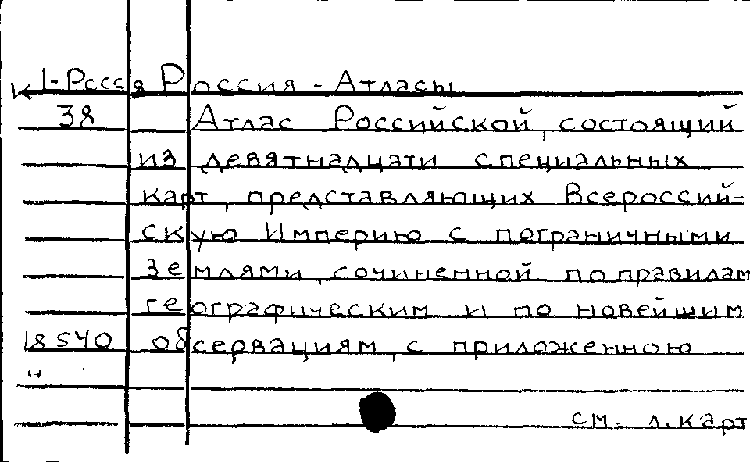 К 1-Росся Россия - Атласы
38 Атлас Российской, состоящий
из девятнадцати специальных
карт, представляющих Всероссий-
скую Империю с пограничными
землями, сочиненной по правилам
географическим и по новейшим
18540 обсервациям, с приложенною
см. л. карт